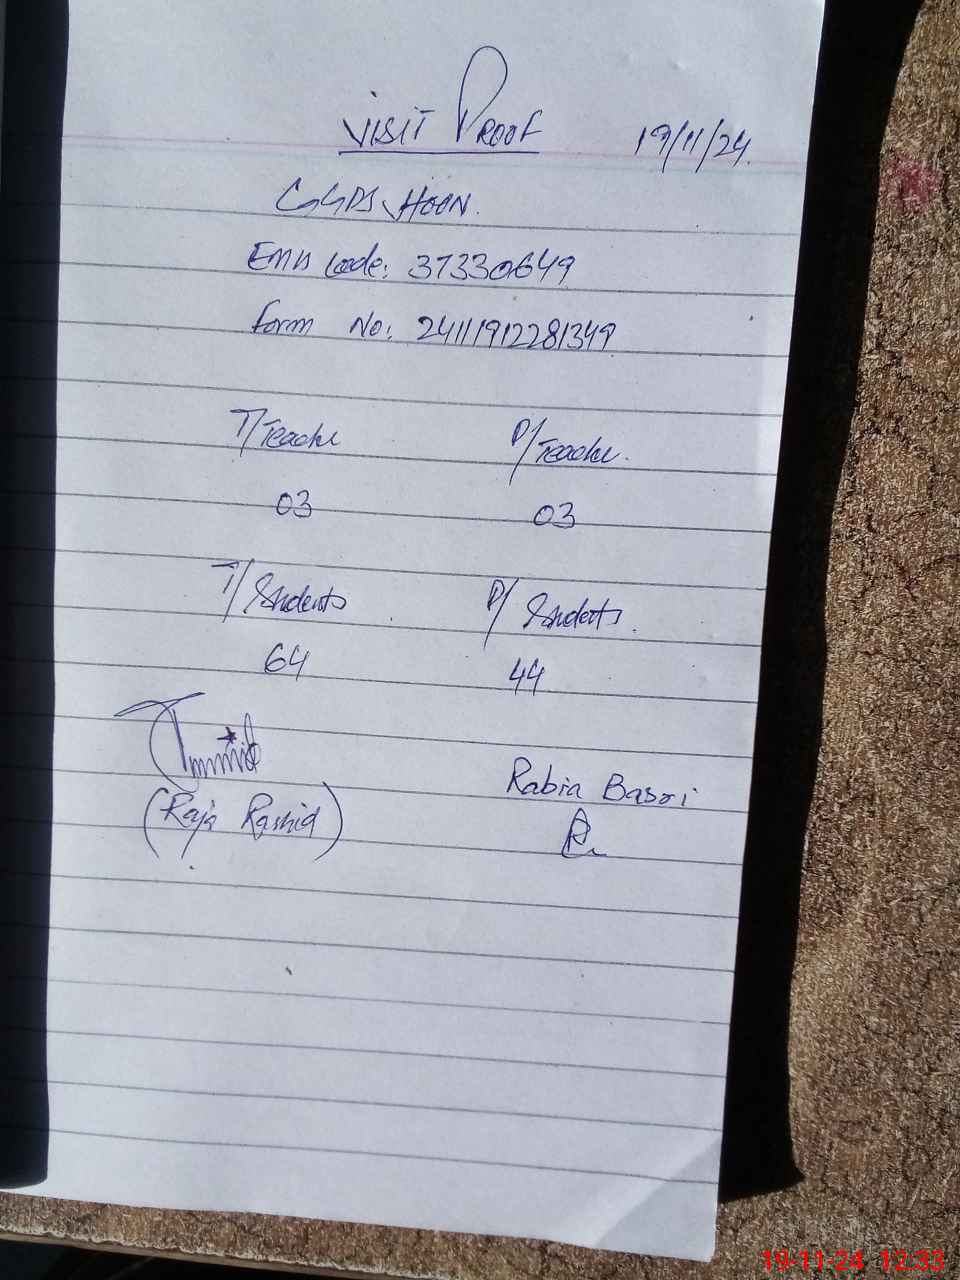 Visit Proof 19/11/24.
GGPS, Hoon.
EMIS Code: 37330649
Form No: 24111912281349
T/Teache P/Teache.
03 03
T/Students P/Students.
64 44
Rabia Basri
(Raja Rashid)
19-11-24 12:33